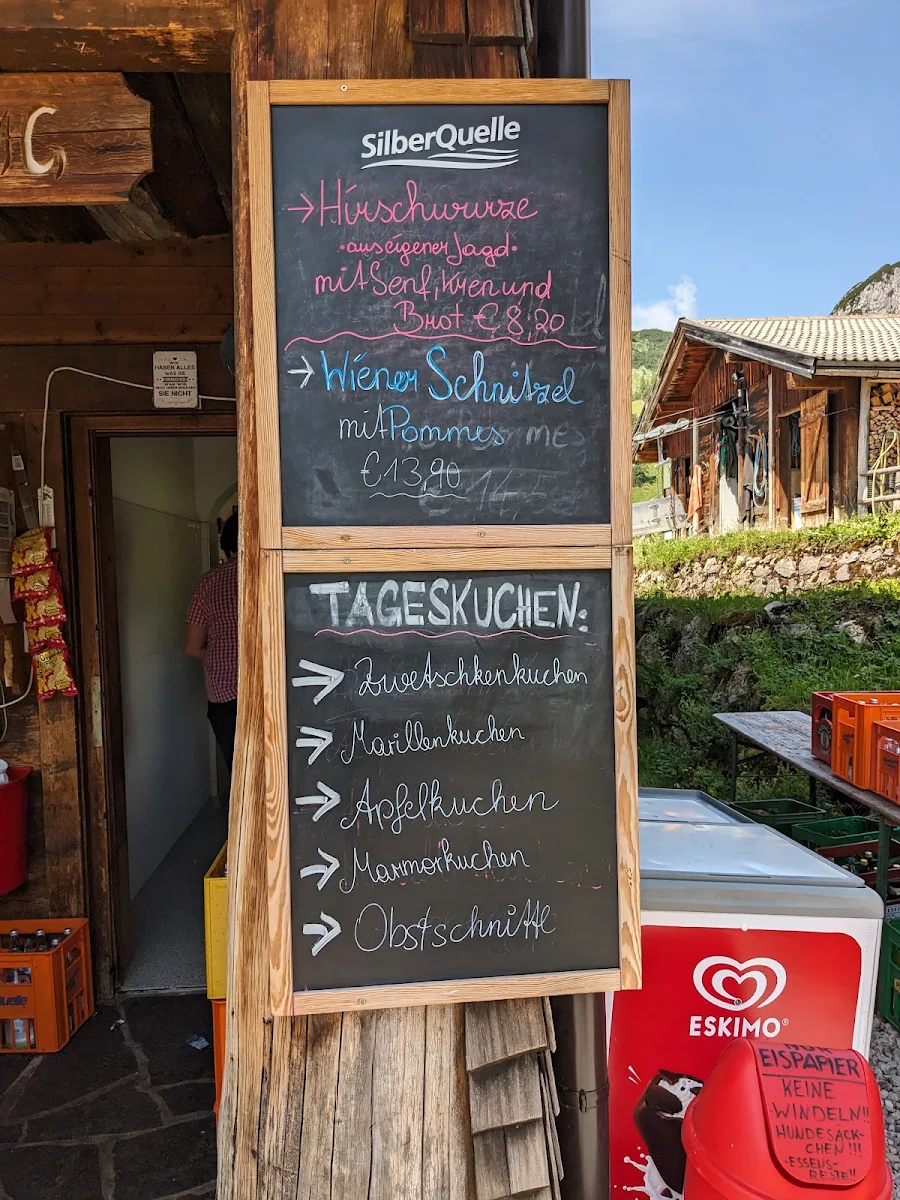 SilberQuelle
→Hirschwurze
•aus eigener Jagd•
mit Senf, Kren und
Brot € 8,20
→Wiener Schnitzel
mit Pommes
€13,90
TAGESKUCHEN:
Zwetschkenkuchen
Marillenkuchen
Apfelkuchen
Marmorkuchen
Obstschnitte
HABEN ALLES
WAS SIE
SIE NICHT
ESKIMO®
NUR
EISPAPIER
KEINE
WINDELN!!
HUNDESÄCK-
CHEN!!!
-ESSENS-
RESTE!!